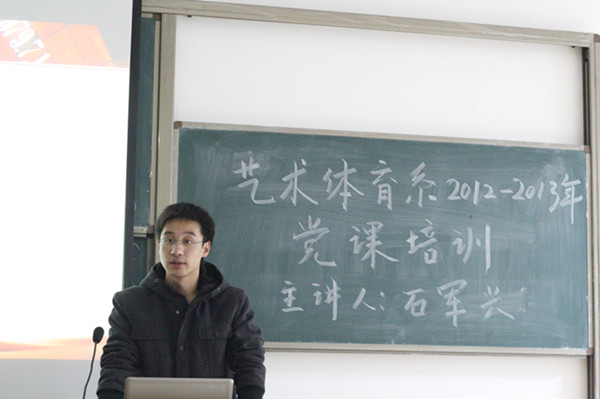 艺术体育系2012-2013年
党课培训
主讲人:石军兴